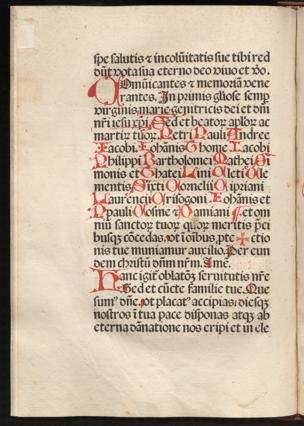 spe salutis ⁊ incolũitatis sue tibi red
dũt vota sua eterno deo viuo et v̾o.
Cõmuicantes ⁊ memoriã vene
rantes. In primis gl̾iose semp̲
virginis marie genitricis dei et dñi
nr̃i iesu xp̃i. Sed et beator̲ ap̾lor̲ ac
martir̲ tuor̲. Petri Pauli Andree
Jacobi. Johãnis Thome Jacobi
Philippi Bartholomei Mathei Si
monis et Thatei Lini Cleti Cle
mentis Sixti Cornelij Cipriani
Laurencij Crisogoni Johãnis et
Pauli Cosme ⁊ Damiani Et om
niũ sanctor̲ tuor̲ quor̲ meritis p̃ci
busq̲ cõcedas. vt i oĩbus, p̲te ctio
nis tue muniamur auxilio. Per eun
dem christũ dñm nr̃m. Amẽ.
Hanc igit̲ oblatõʒ seruitutis nr̃e
Sed et cũcte familie tue. Que
sum̾ dñe. vt placat̾ accipias, diesq̲
nostros ĩ tua pace disponas atq̲ʒ ab
eterna dãnatione nos eripi et in ele